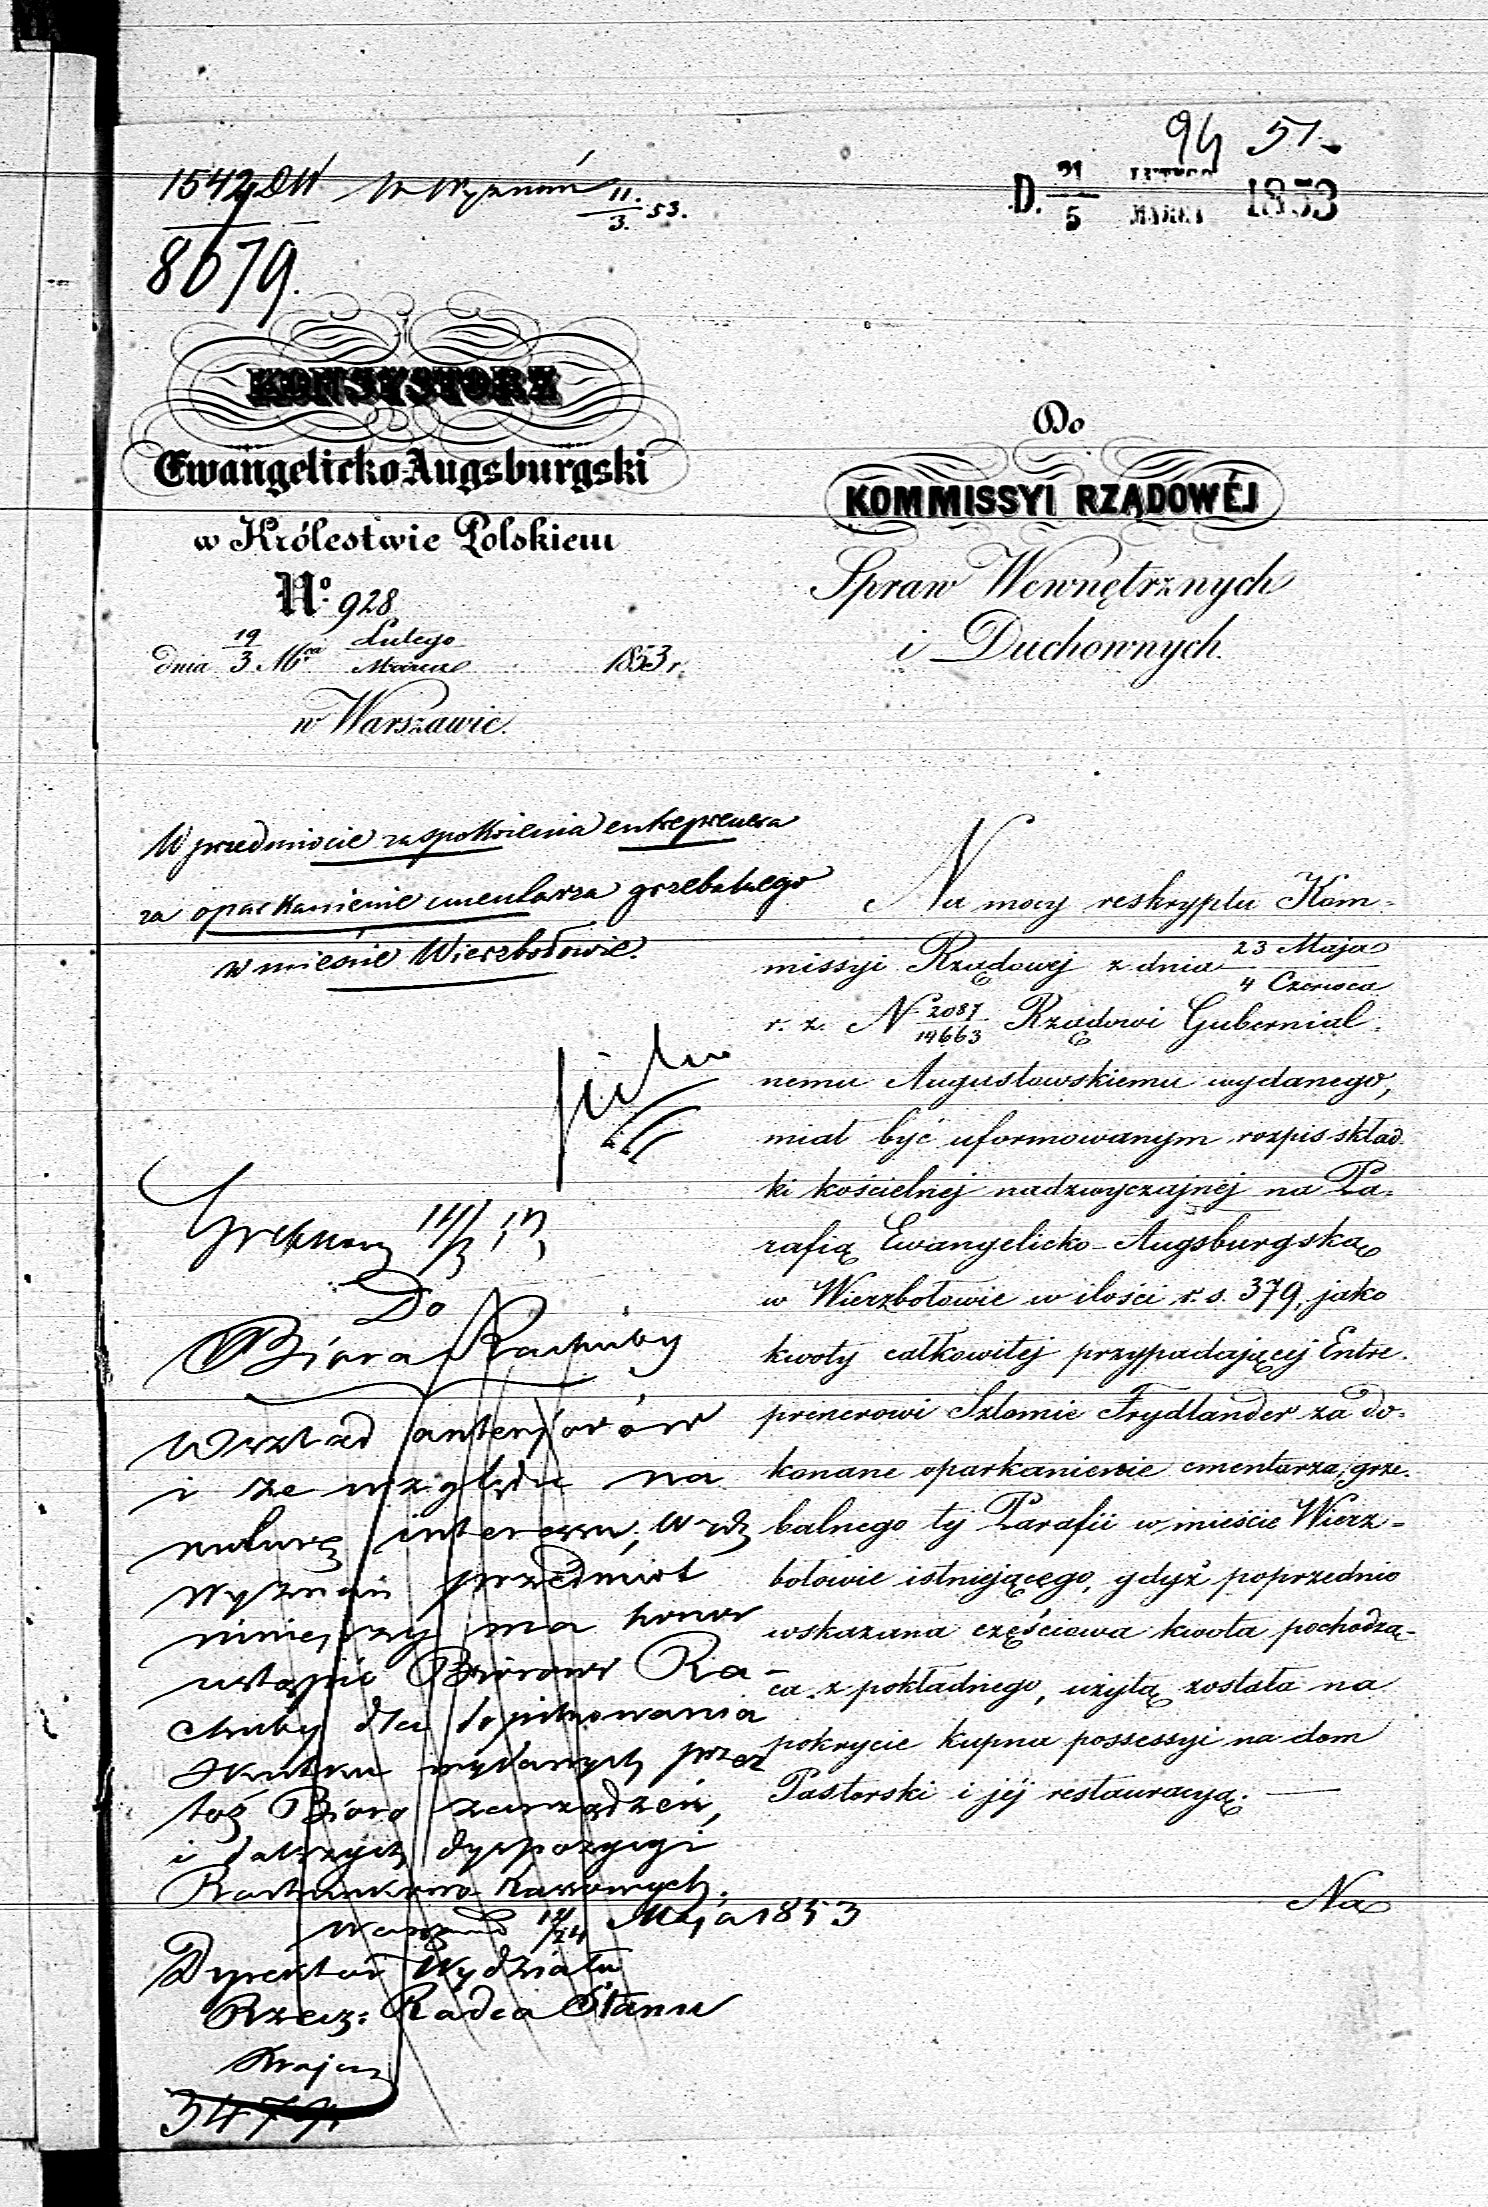 94 51.
1542 DW W Wyznań 11./3. 53.
8679.
D. 21/5 LUTEGO/MARCA 1853
KONSYSTORZ
Ewangelicko-Augsburgski
w Królestwie Polskiem
No. 928
dnia 19/3 Mca Lutego/Marca 1853 r.
w Warszawie.
Do
KOMMISSYI RZĄDOWÉJ
Spraw Wewnętrznych
i Duchownych.
W przedmiocie zaspokoienia entreprenera
za oparkanienie cmentarza grzebalnego
w mieście Wierzbołowie.
Na mocy reskryptu Kom-
missyi Rządowej z dnia 23 Maja/4 Czerwca
r. z. N 2087/14663 Rządowi Gubernial-
nemu Augustowskiemu wydanego,
miał być uformowanym rozpis skład-
ki kościelnej nadzwyczajnéj na Pa-
rafią Ewangelicko-Augsburgską
w Wierzbołowie w ilości r. s. 379, jako
kwoty całkowitej przypadającej Entre-
prenerowi Szlomie Frydlander za do-
konane oparkanienie cmentarza grze-
balnego tj Parafii w mieście Wierz-
bołowie istniejącego, gdyż poprzednio
wskazana częściowa kwota pochodzą-
ca z pokładnego, użytą została na
pokrycie kupna possessyi na dom
Pastorski i jéj restauracyą.
Na
Do
Bióra Rachuby
W ślad anteriorów
i ze względu na
naturę interesu, Wydz
Wyznań przedmiot
niniejszy ma honor
ustąpić Biórowi Ra-
chuby dla dopilnowania
skutku wydanych przez
toż Bióro zarządzeń,
i dalszych dyspozycyi
Rachunkowo Kassowych.
Warszawa 12/24 Maja 1853
Dyrektor Wydziału
Rzecz: Radca Stanu
3479.